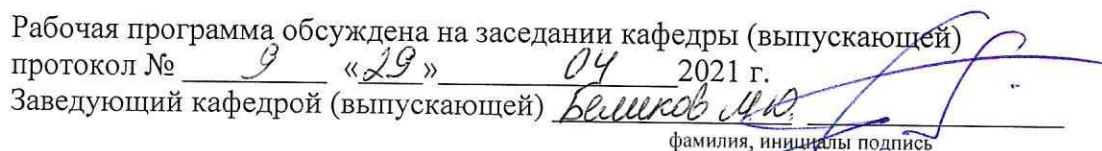 Рабочая программа обсуждена на заседании кафедры (выпускающей)
протокол № 9 «29» 04 2021 г.
Заведующий кафедрой (выпускающей) Беликов М.Ю.
фамилия, инициалы подпись